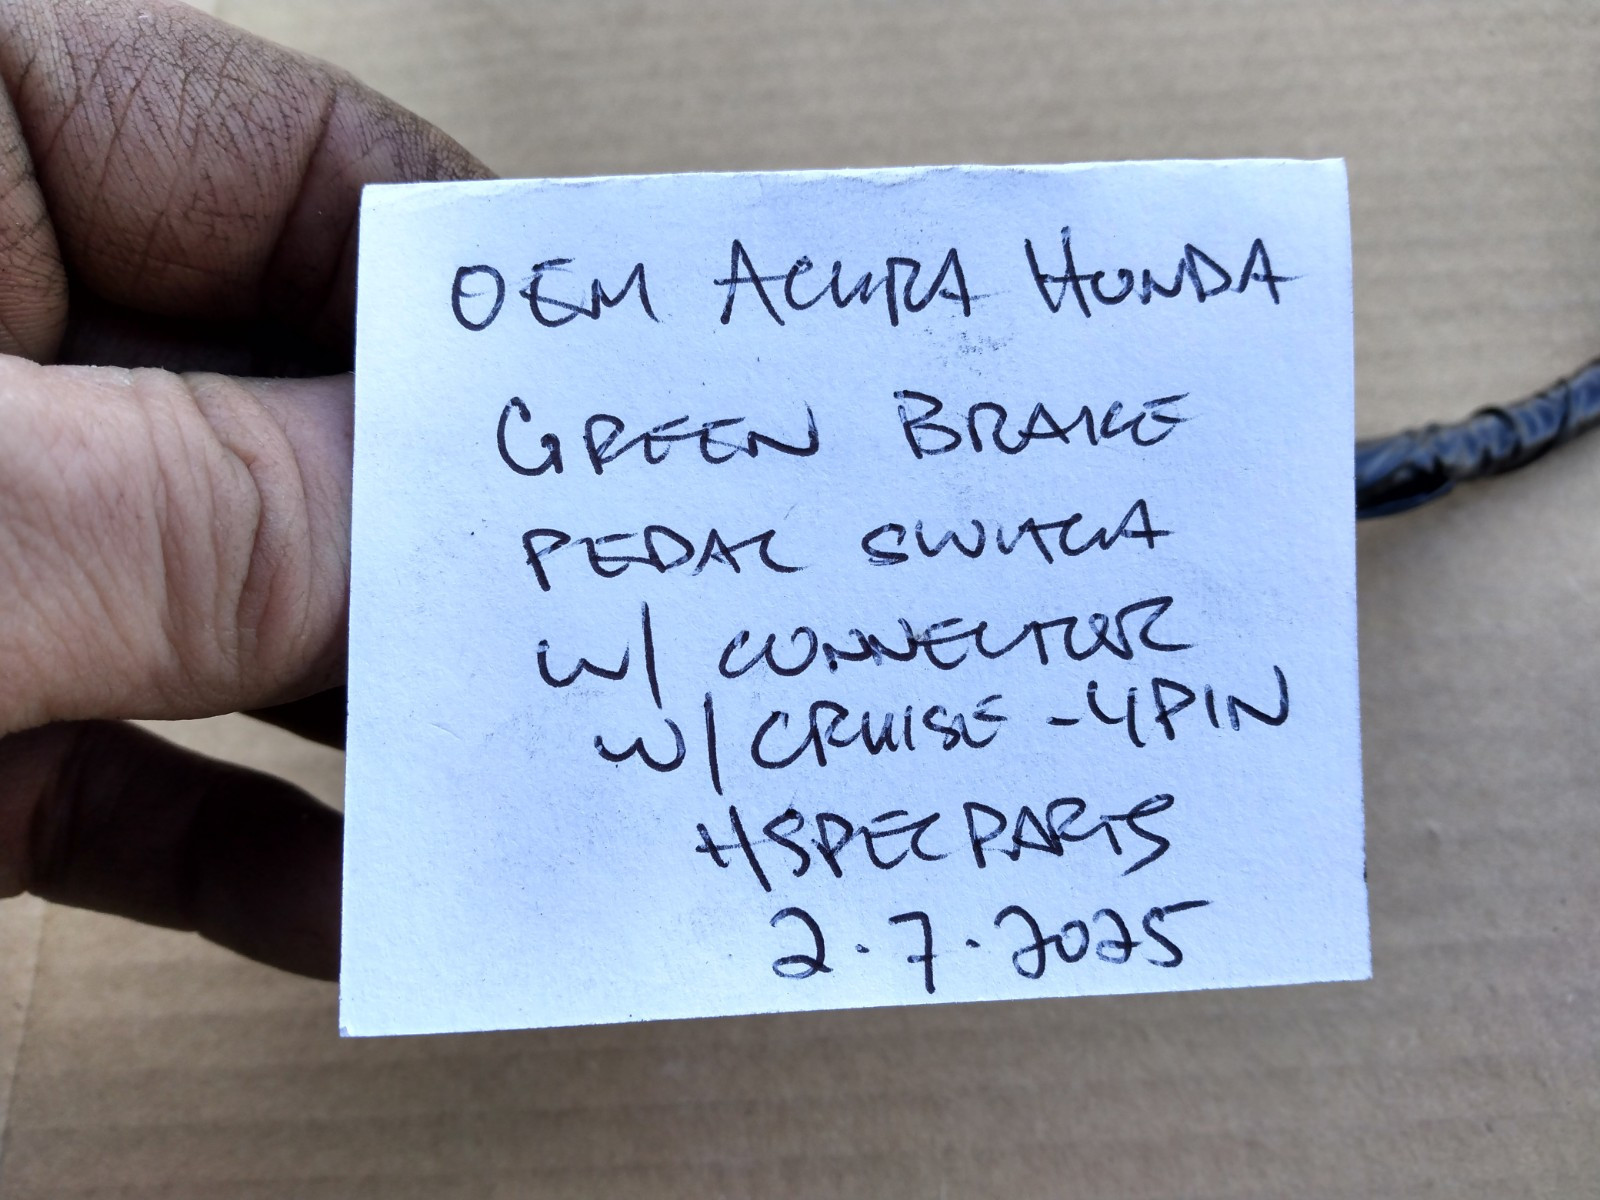 OEM ACURA HONDA
GREEN BRAKE
PEDAL SWITCH
W/ CONNECTOR
W/ CRUISE - 4 PIN
HSPECPARTS
2.7.2025